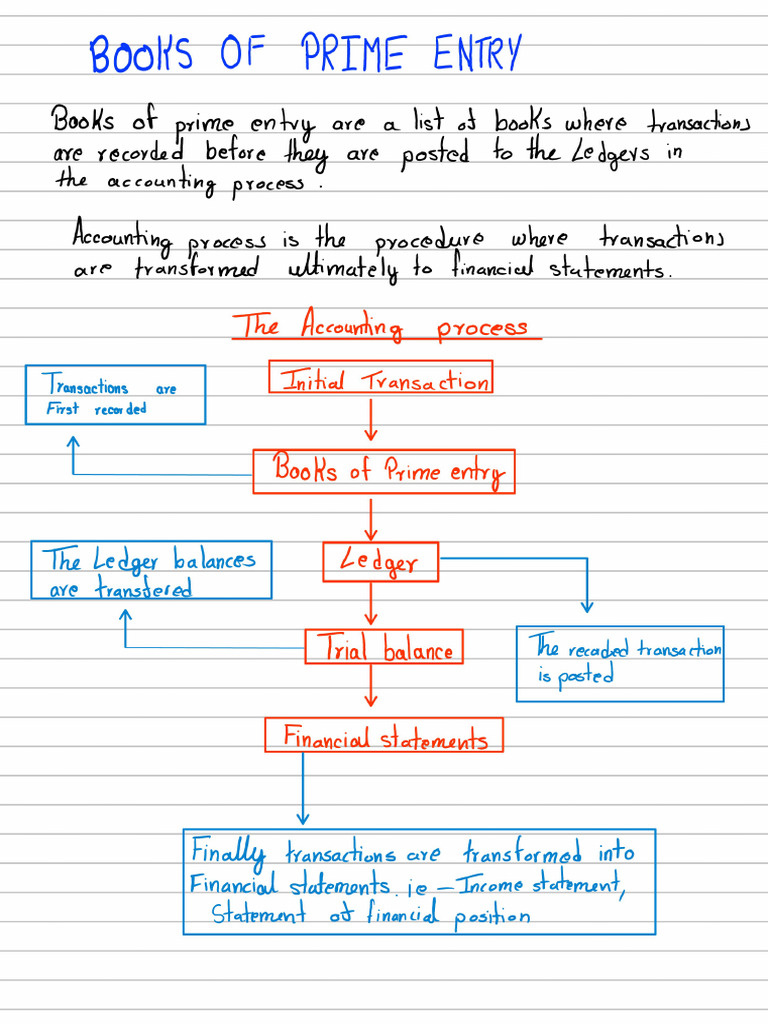 BOOKS OF PRIME ENTRY
Books of prime entry are a list of books where transactions
are recorded before they are posted to the Ledgers in
the accounting process.
Accounting process is the procedure where transactions
are transformed ultimately to financial statements.
The Accounting process
Initial Transaction
Transactions are
First recorded
Books of Prime entry
The Ledger balances
are transfered
Ledger
Trial balance
The recorded transaction
is posted
Financial statements
Finally transactions are transformed into
Financial statements. ie – Income statement,
Statement of financial position